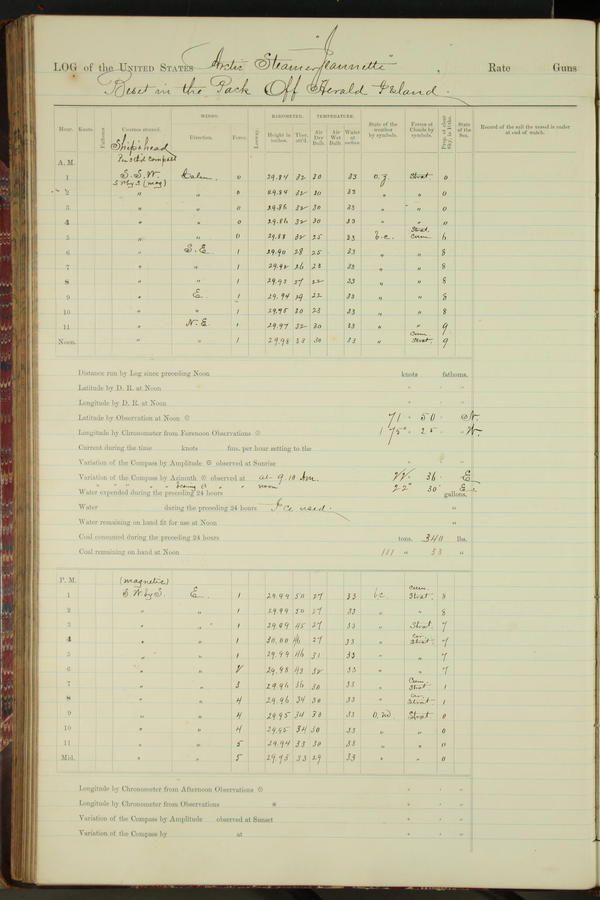 LOG of the UNITED STATES Arctic Steamer "Jeannette", Rate Guns
Beset in the Pack Off Herald Island.
Hour. Knots. Fathoms. Courses steered. WINDS. Direction. Force. Leeway. BAROMETER. Height in inches. Ther. att'd. TEMPERATURE. Air Dry Bulb. Air Wet Bulb. Water at surface. State of the weather by symbols. Forms of Clouds by symbols. Prop. of clear sky, in 10ths. State of the Sea. Record of the sail the vessel is under at end of watch.
Ship's head
Pr. st'd compass
A. M.
1 S.S.W. Calm 0 29.84 32 30 33 o.z. Strat. 0
S.W by S (mag)
2 " " 0 29.84 32 30 33 " " 0
3 " " 0 29.86 32 30 33 " " 0
4 " " 0 29.86 32 30 33 " " 0
5 " " 0 29.88 32 25 33 b.c. Strat. Cum 6
6 " S.E. 1 29.90 28 25 33 " " 8
7 " " 1 29.92 26 23 33 " " 8
8 " " 1 29.93 27 22 33 " " 8
9 " E. 1 29.94 29 22 33 " " 8
10 " " 1 29.95 30 23 33 " " 8
11 " N.E. 1 29.97 32 30 33 " " 9
Noon. " " 1 29.98 33 30 33 " Cum. Strat. 9
Distance run by Log since preceding Noon knots fathoms.
Latitude by D. R. at Noon ° ' "
Longitude by D. R. at Noon ° ' "
Latitude by Observation at Noon 71 ° 50 ' N.
Longitude by Chronometer from Forenoon Observations 175 ° 25 ' W.
Current during the time knots fms. per hour setting to the
Variation of the Compass by Amplitude observed at Sunrise ° ' "
Variation of the Compass by Azimuth observed at at 9.10 Am. 22 ° 36 ' E
" " " " bearing " " noon 22° 30' E
Water expended during the preceding 24 hours gallons.
Water during the preceding 24 hours Ice used. "
Water remaining on hand fit for use at Noon "
Coal consumed during the preceding 24 hours tons. 340 lbs.
Coal remaining on hand at Noon 111 " 53 "
P. M. (magnetic)
1 S.W by S. E. 1 29.99 50 27 33 b.c. Cum. Strat. 8
2 " " 1 29.99 50 27 33 " " 8
3 " " 1 29.99 45 27 33 " Strat. 7
4 " " 1 30.00 46 27 33 " Strat. 7
5 " " 1 29.99 46 31 33 " " 7
6 " " 2 29.98 43 32 33 " " 7
7 " " 3 29.96 36 30 33 " Cum. Strat 1
8 " " 4 29.96 34 30 33 " Strat 1
9 " " 4 29.95 34 30 33 O.m. Strat 0
10 " " 4 29.95 34 30 33 " " 0
11 " " 5 29.94 33 30 33 " " 0
Mid. " " 5 29.93 33 29 33 " " 0
Longitude by Chronometer from Afternoon Observations ° ' "
Longitude by Chronometer from Observations ° ' "
Variation of the Compass by Amplitude observed at Sunset ° ' "
Variation of the Compass by at ° ' "